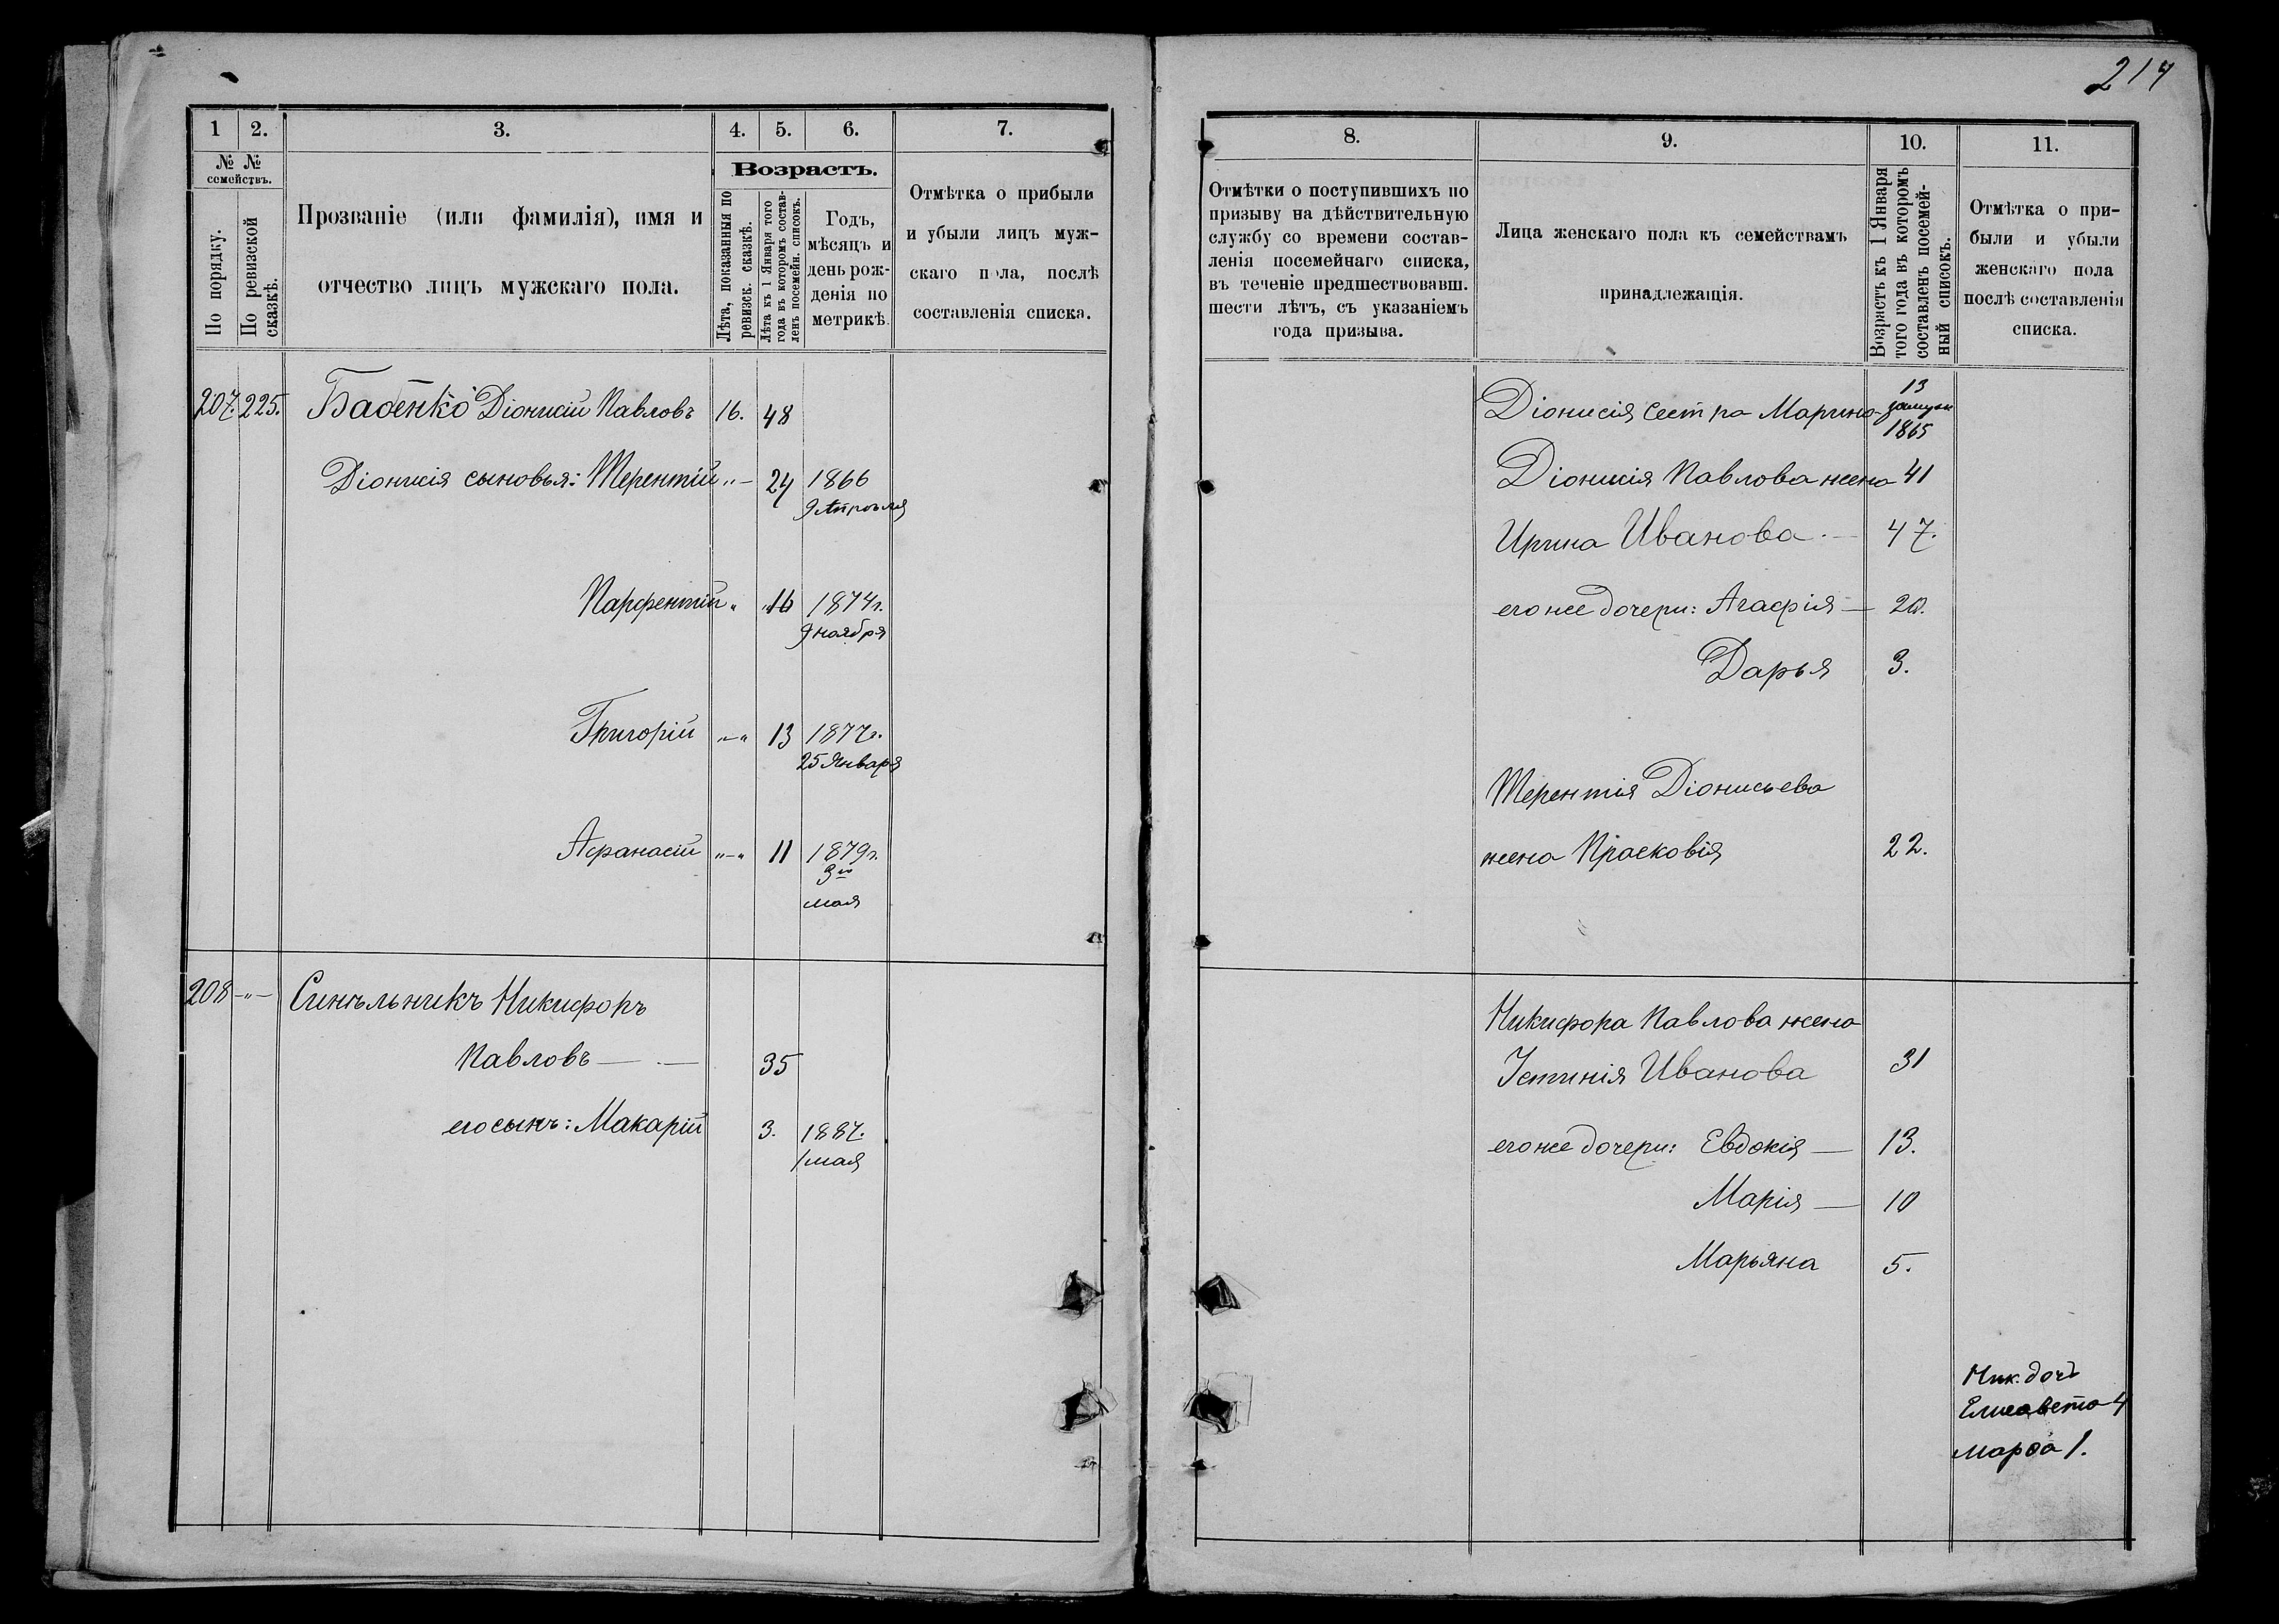 217
1 2. 3. 4. 5. 6. 7.
№ № семействъ.
По порядку.
По ревизской сказкѣ.
Прозваніе (или фамилія), имя и
отчество лицъ мужскаго пола.
Возрастъ.
Лѣта, показанныя по ревизск. сказкѣ.
Лѣта къ 1 Января того года въ которомъ составленъ посемейн. списокъ.
Годъ,
мѣсяцъ и
день рож-
денія по
метрикѣ.
Отмѣтка о прибыли
и убыли лицъ муж-
скаго пола, послѣ
составленія списка.
207. 225. Бабенко Діонисій Павловъ 16. 48
Діонисія сыновья: Терентій "— 24 1866
9 Апрѣля
Парфентій " " 16 1874 г.
9 ноября
Григорій "—" 13 1877 г.
25 Января
Афанасій "—" 11 1879 г.
3го
мая
208 —"— Синѣльникъ Никифоръ
Павловъ — — 35
его сынъ: Макарій 3. 1887.
1 мая
8. 9. 10. 11.
Отмѣтки о поступившихъ по
призыву на дѣйствительную
службу со времени состав-
ленія посемейнаго списка,
въ теченіе предшествовавш.
шести лѣтъ, съ указаніемъ
года призыва.
Лица женскаго пола къ семействамъ
принадлежащія.
Возрастъ къ 1 Января
того года въ которомъ
составленъ посемей-
ный списокъ.
Отмѣтка о при-
были и убыли
женскаго пола
послѣ составленія
списка.
Діонисія сестра Марина 13
замуж
1865
Діонисія Павлова жена 41
Ирина Иванова — 47.
его же дочери: Агафія — 20.
Дарья 3.
Терентія Діонисьева
жена Прасковія 22.
Никифора Павлова жена
Іустинія Иванова 31
его же дочери: Евдокія — 13.
Марія — 10
Марьяна 5.
Ник. дочь
Елисавета 4
Марѳа 1.